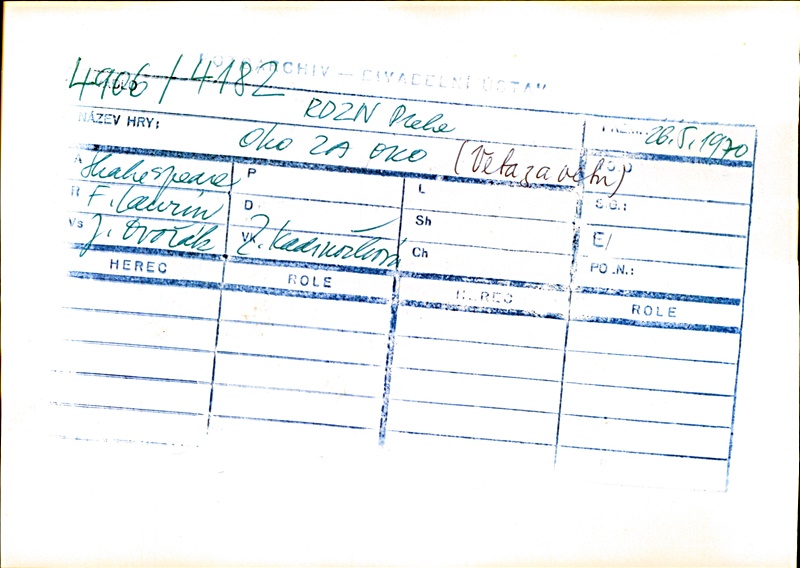 FOTOARCHIV — DIVADELNÍ ÚSTAV
4906/4182
RDZN Praha
PREM.: 26.5.1970
NÁZEV HRY: OKO ZA OKO (Veta za vetu)
A Shakespeare P L
R F. Laurin D Sh S.G.:
Vs J. Dvořák Vk Z. Kadrnožková Ch E/
PO.N.:
HEREC ROLE HEREC ROLE